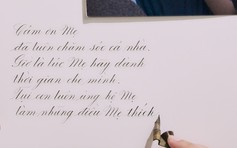 Cảm ơn Mẹ
đã luôn chăm sóc cả nhà.
Giờ là lúc Mẹ hãy dành
thời gian cho mình.
Tụi con luôn ủng hộ Mẹ
làm những điều Mẹ thích